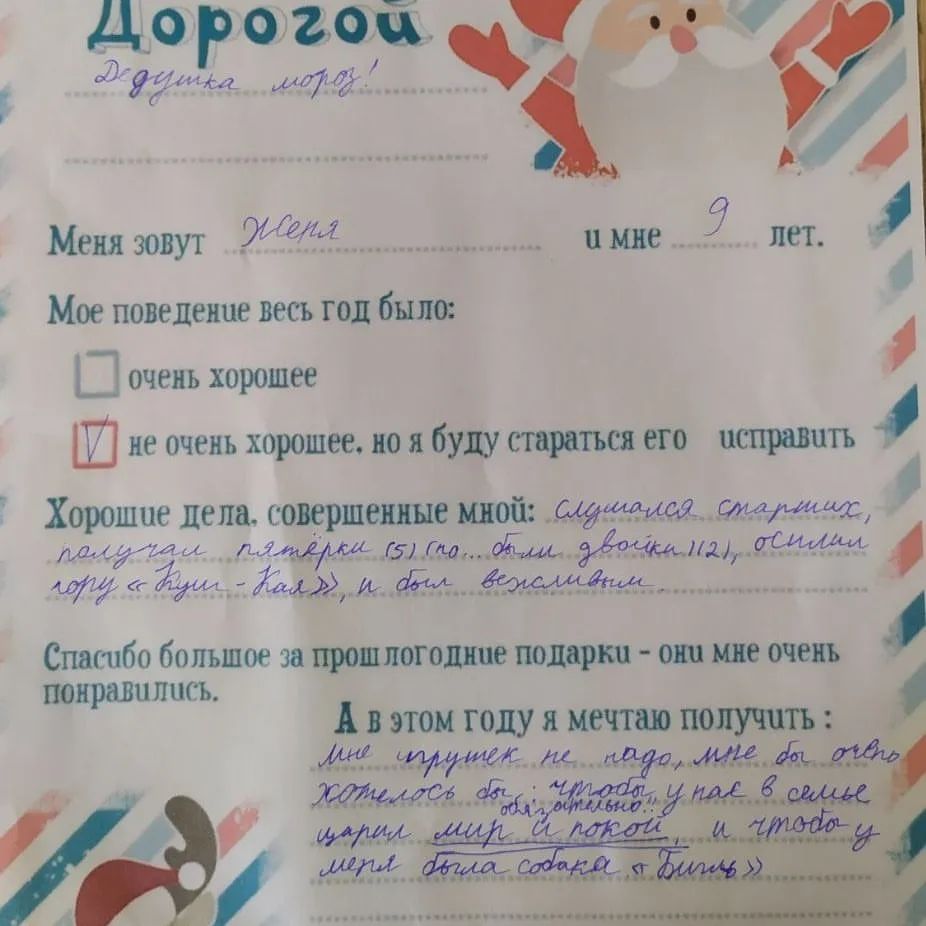 Дорогой
Дедушка мороз!
Меня зовут Женя и мне 9 лет.
Мое поведение весь год было:
очень хорошее
V не очень хорошее, но я буду стараться его исправить
Хорошие дела, совершенные мной: слушался старших,
получал пятёрки (5) (но... были двойки)(2), осилил
гору «Куш-Кая», и был вежливым.
Спасибо большое за прошлогодние подарки - они мне очень
понравились.
А в этом году я мечтаю получить :
Мне игрушек не надо, мне бы очень
хотелось бы : чтобы у нас в семье
обязательно
царил мир и покой, и чтобы у
меня была собака «Бигль»